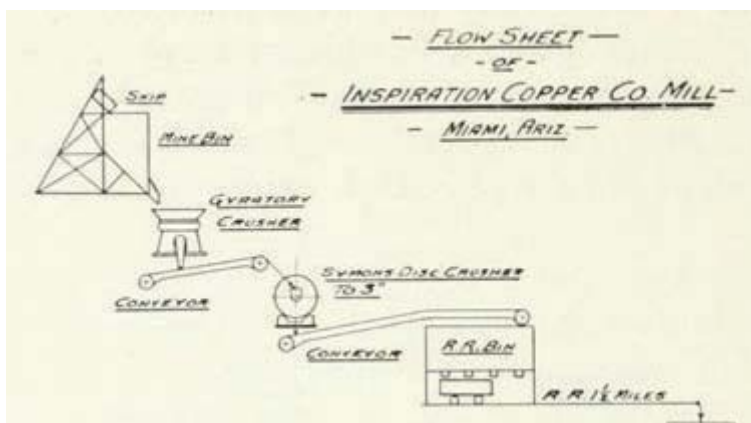 — FLOW SHEET —
- OF -
- INSPIRATION COPPER CO. MILL -
- MIAMI, ARIZ. -
SKIP
MINE BIN
GYRATORY
CRUSHER
CONVEYOR
SYMONS DISC CRUSHER
TO 3"
CONVEYOR
R.R. BIN
R.R. 1½ MILES